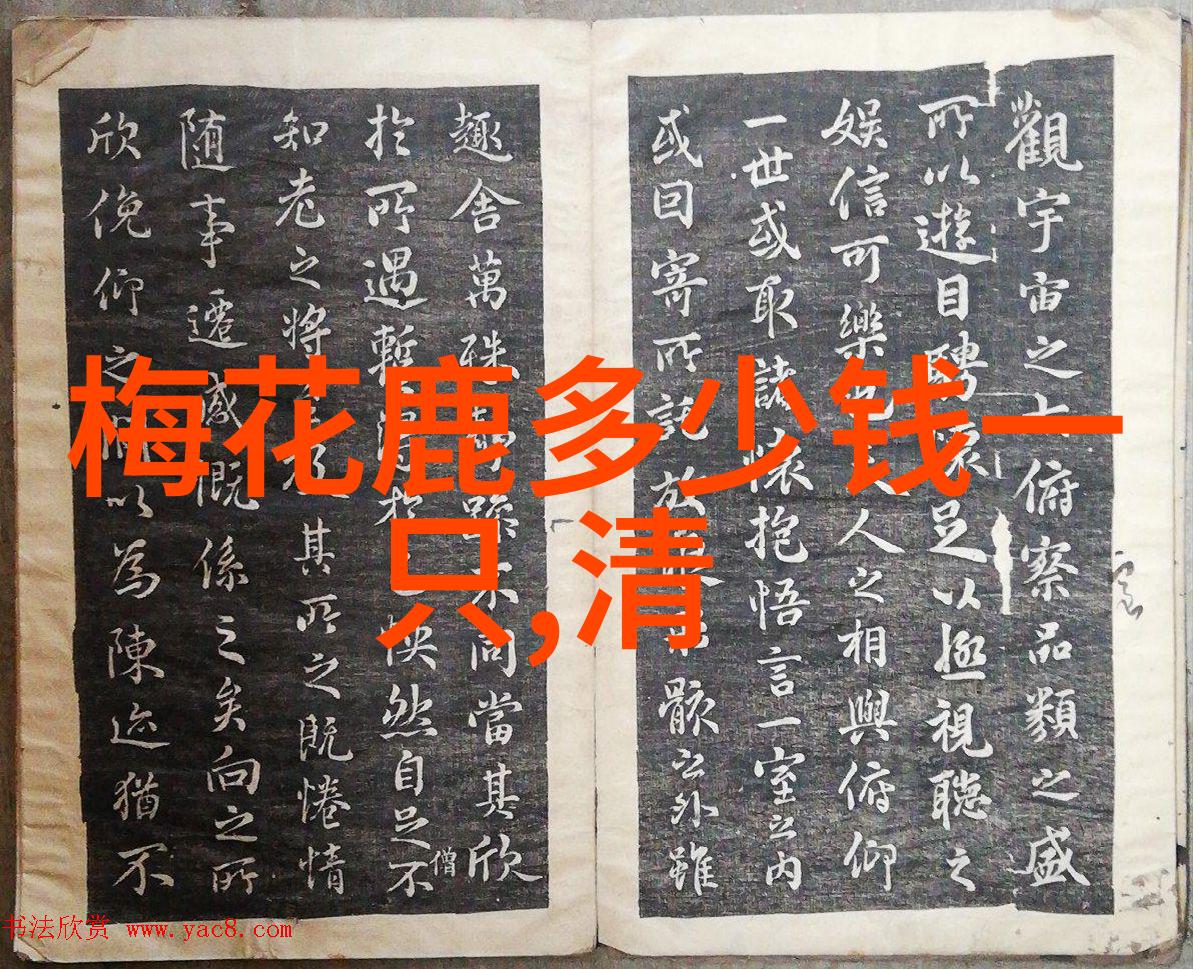 梅花鹿多少钱一
只,清
觀宇宙之大俯察品類之盛
所以遊目騁懷足以極視聽之
娛信可樂也夫人之相與俯仰
一世或取諸懷抱悟言一室之内
或因寄所託放浪形骸之外雖
趣舍萬殊靜躁不同當其欣
於所遇暫得於己怏然自足不
僧
知老之將至及其所之既惓情
随事遷感慨係之矣向之所
欣俛仰之閒以為陳迹猶不
书法欣赏 www.yac8.com